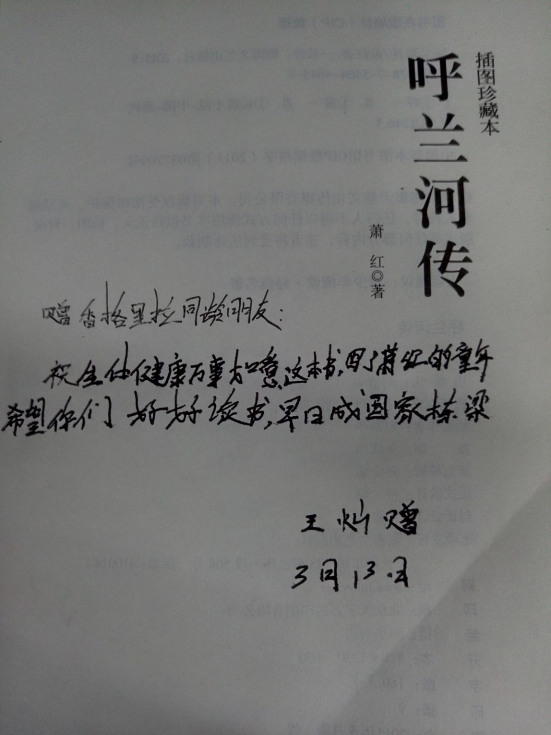 插图珍藏本
呼兰河传
萧 红◎著
赠香格里拉同龄朋友：
祝全体健康万事如意这本书，写了萧红的童年
希望你们好好读书，早日成国家栋梁
王灿赠
3月13日